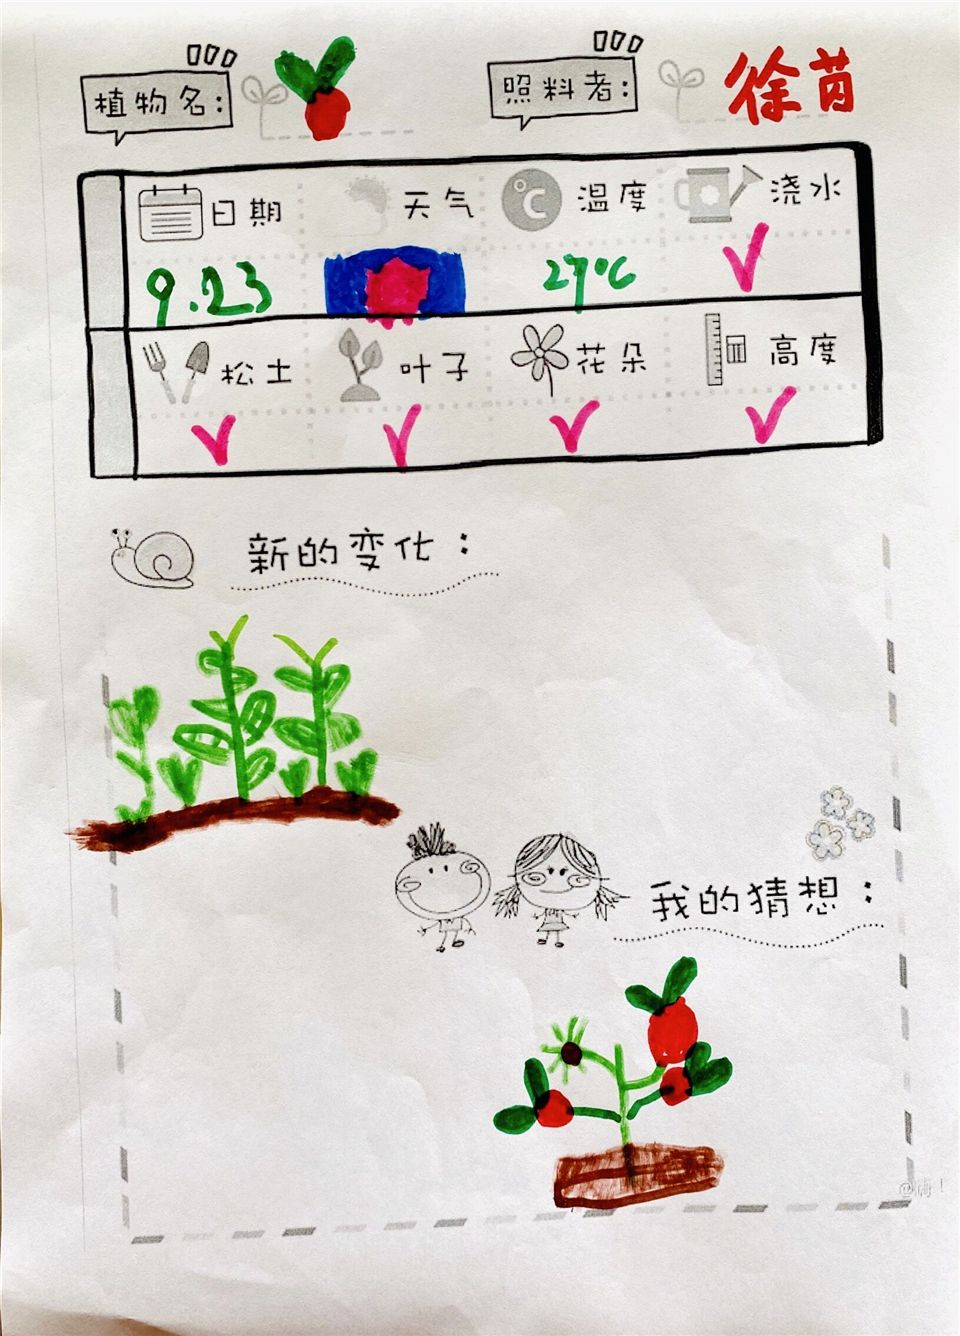 植物名:
照料者: 徐苒
日期 天气 温度 浇水
9.23 27℃
松土 叶子 花朵 高度
新的变化:
我的猜想: